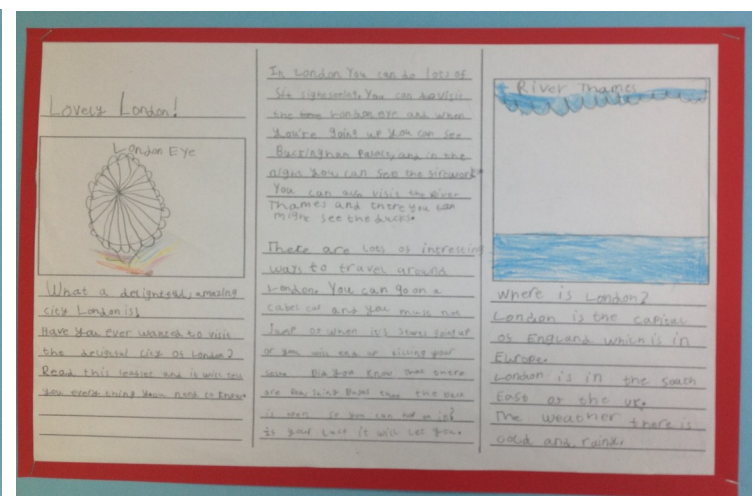 Lovely London!
London Eye
What a delightful, amazing
city London is!
Have you ever wanted to visit
the delightful city of London?
Read this leaflet and it will tell
you every thing your need to know.
In London You can do lots of
sit signseeing. You can visit
the London eye and when
You're going up you can see
Buckingham Palace, and in the
night you can see the firework
You can also visit the River
Thames and there you can
might see the ducks.
There are lots of intresting
ways to travel around
London. You can go on a
cabel car and you must not
Jump of when it's starts
or you will end up killing your
Did you know that there
are buses that the
is open so you can
it will let you.
River Thames
Where is London?
London is the capital
of England which is in
Europe.
London is in the south
East of the UK.
The weather there is
cold and raind.